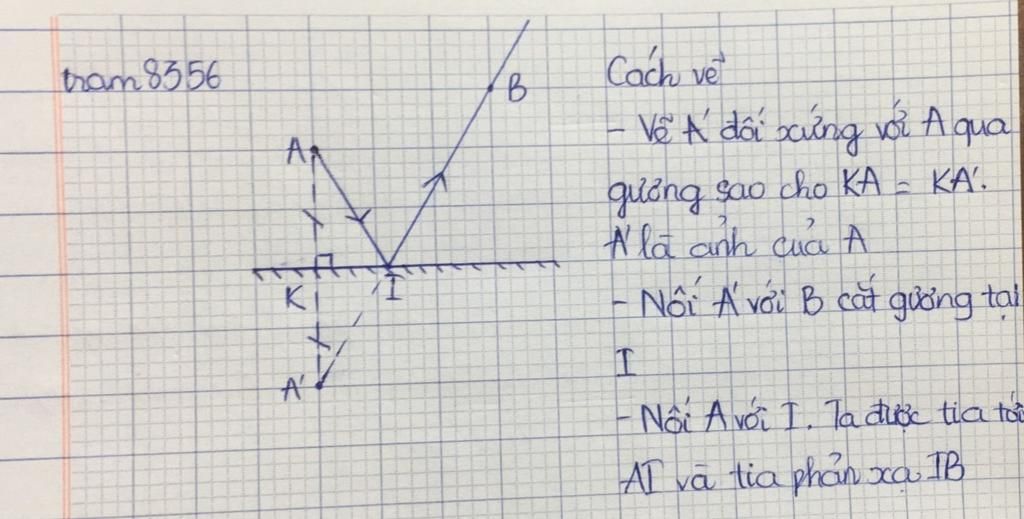 tram8356
Cách vẽ
- Vẽ A' đối xứng với A qua
gương sao cho KA = KA'.
A' là ảnh của A
- Nối A' với B cắt gương tại
I
- Nối A với I. Ta được tia tới
AI và tia phản xạ IB
B
A
K
I
A'